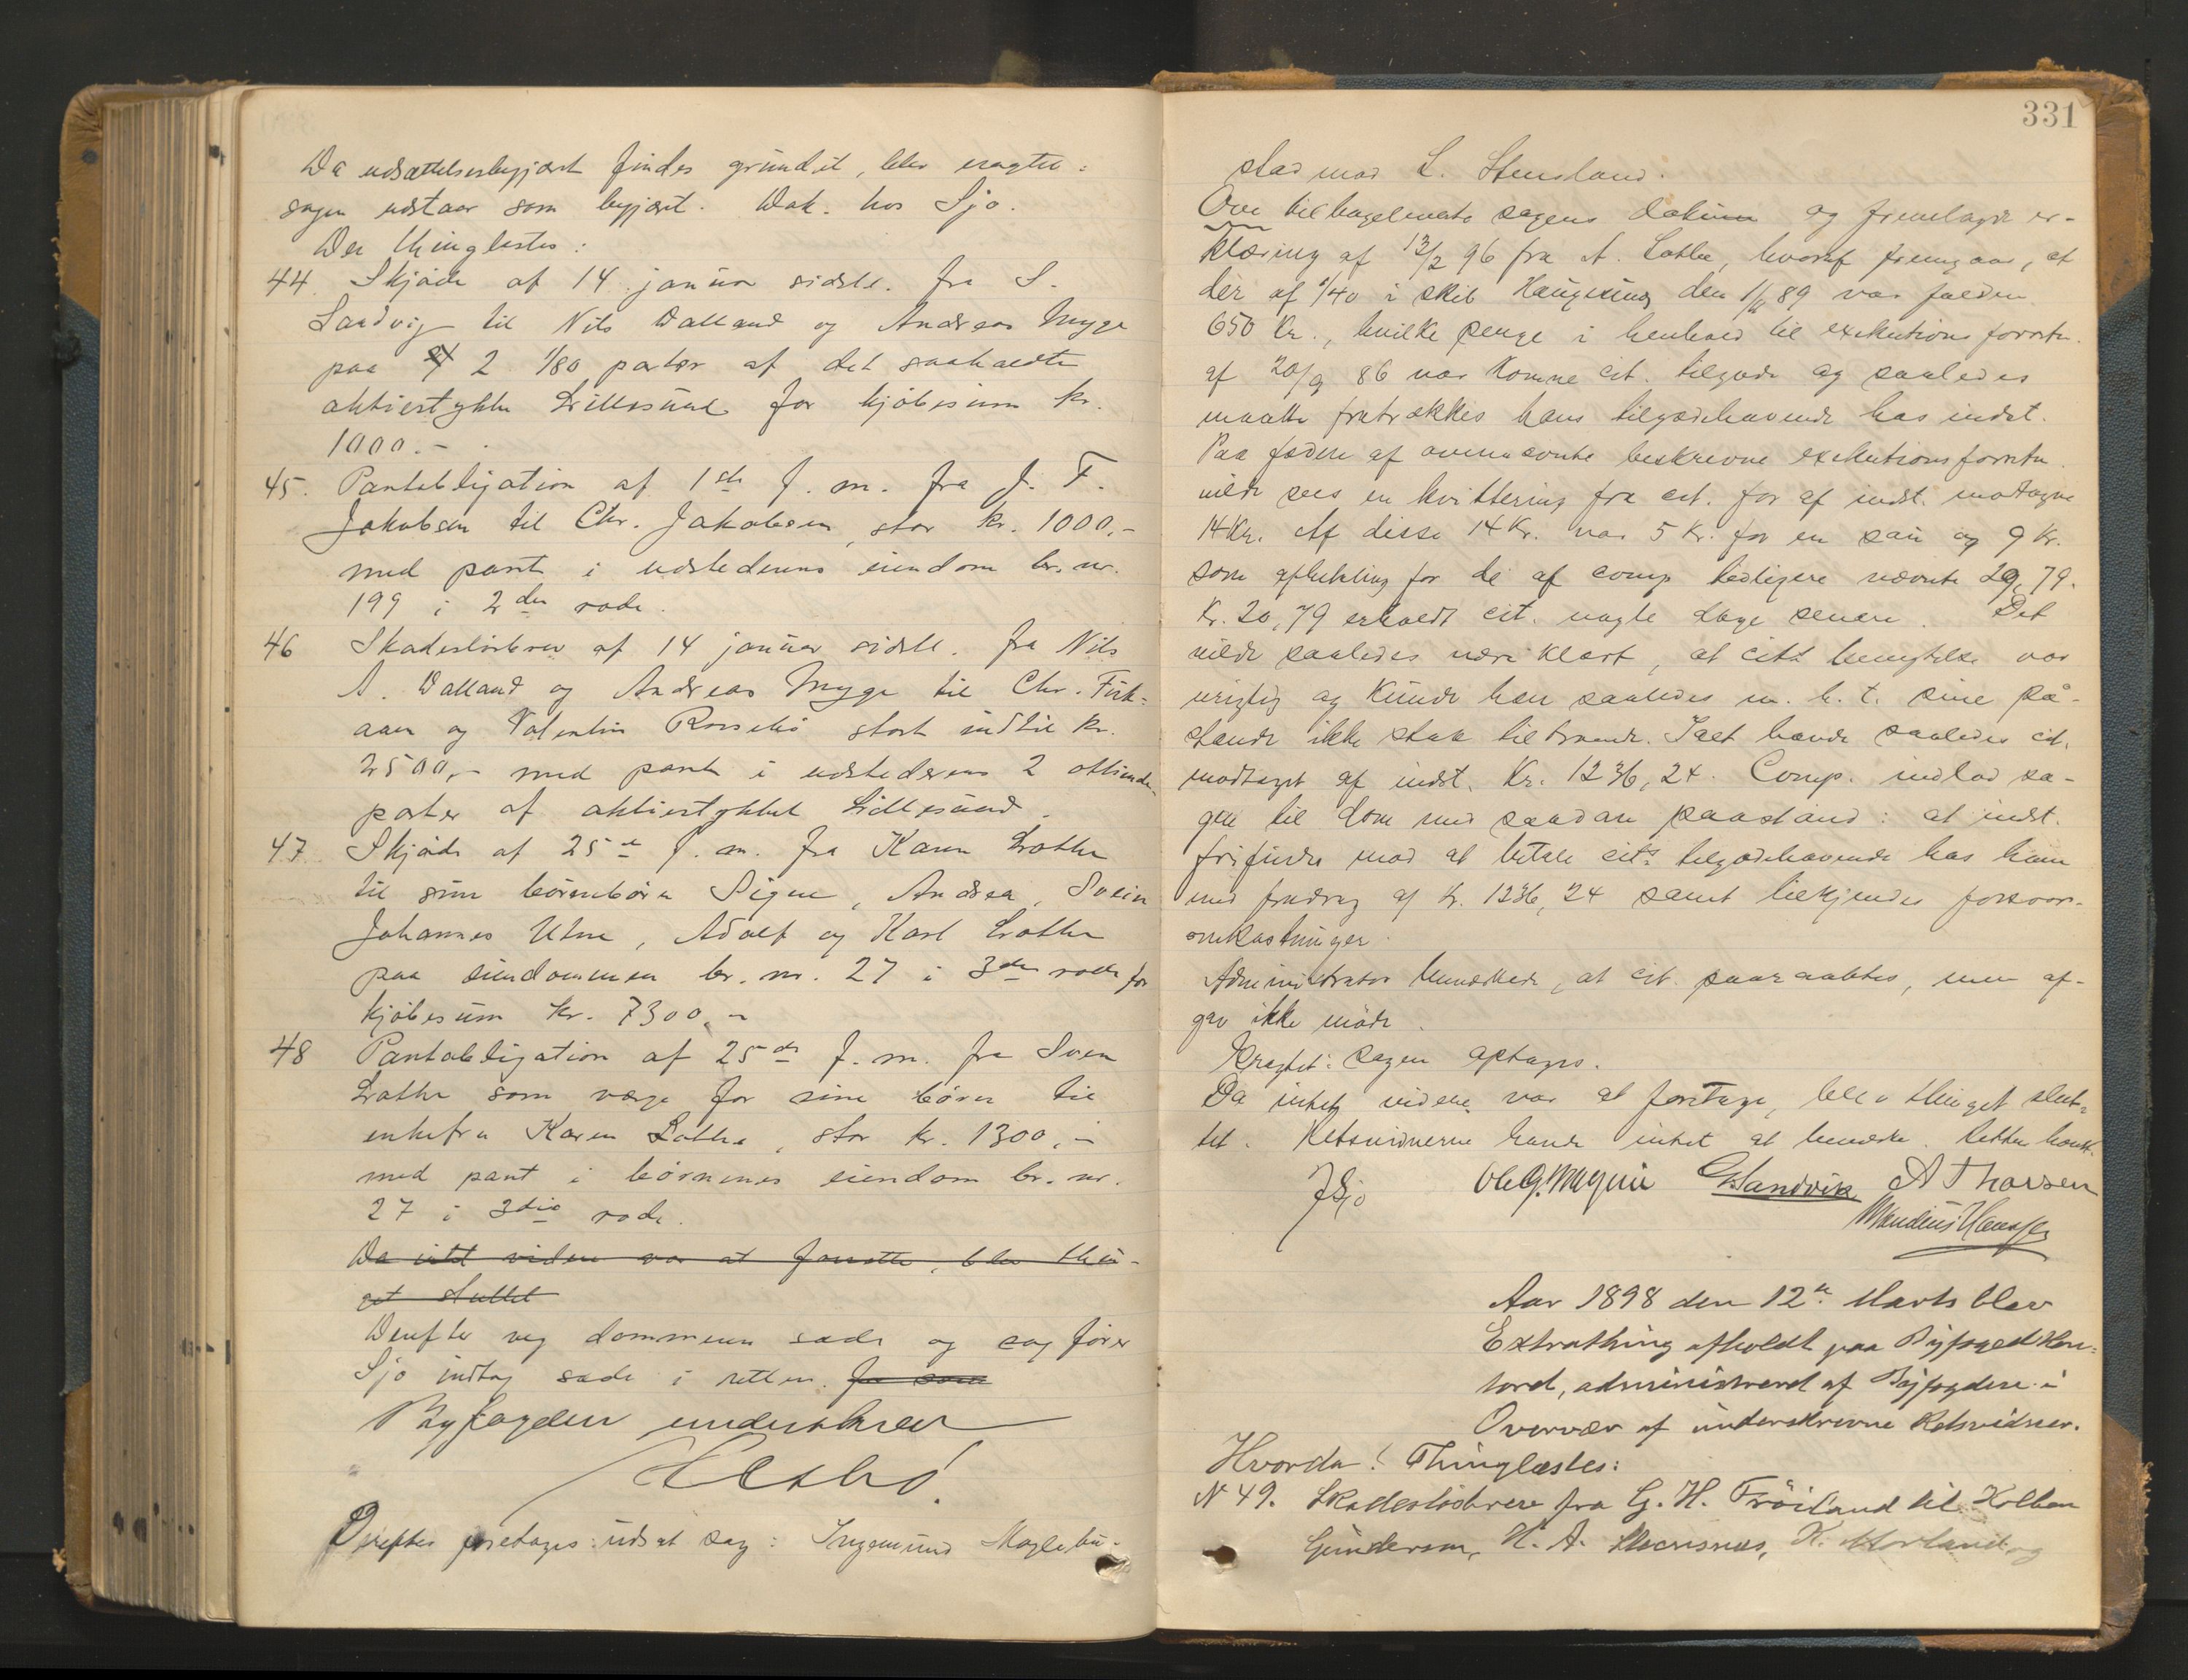 Da udsættelsesbegjært findes grundet, blev eragtet:
sagen udstaar som begjært. Dok. hos Sjo.
Der thinglæstes:
44. Skjøde af 14 januar sidstl. fra S.
Sandvig til Nils Valland og Andreas Myge
paa 2 1/80 parter af det saakaldte
aktiestykke Lillesund for kjøbesum kr.
1000.-
45. Pantobligation af 1ste f. m. fra J. F.
Jakobsen til Chr. Jakobsen, stor kr. 1000,-
med pant i udstederens eiendom br. nr.
199 i 2den rode.
46 Skadesløsbrev af 14 januar sidstl. fra Nils
A. Valland og Andreas Myge til Chr.
aaen og Valentin stort indtil kr.
2500,- med pant i udstedernes 2 ottiende-
parter af aktiestykket Lillesund.
47. Skjøde af 25de f. m. fra Karen Lothe
til sine børnebørn Signe, Andrea, Svein
Johannes Utne, Adolf og Karl Lothe
paa eiendommen br. nr. 27 i 3die rode for
kjøbesum kr. 7300,-
48 Pantobligation af 25de f. m. fra Sven
Lothe som værge for sine børn til
enkefru Karen Lothe, stor kr. 1300,-
med pant i børnenes eiendom br. nr.
27 i 3die rode.
Da intet videre var at foretage, blev thin-
get sluttet
Derefter veg dommeren sæde og sagfører
Sjo indtog sæde i retten. for som
Byfogden underskrev
Derefter foretages udsat sag: Ingemund Maglebu-
331
stad mod L. Stensland.
Ove tilbageleverte sagens dokum og fremlagde er-
klæring af 13/2 96 fra A. Lothe, hvoraf fremgaar, at
der af 1/40 i skib Haugesund den 1/ 89 var falden
650 Kr., hvilke penge i henhold til exekutions forretn.
af 20/9 86 var komne cit. tilgode og saaledes
maatte fratrækkes hans tilgodehavende hos indst.
Paa foden af ovennævnte beskrevne exekutionsforretn.
vilde sees en kvittering fra cit. for af indst. modtagne
14 Kr. Af disse 14 Kr. var 5 Kr. for en sau og 9 Kr.
som afbetaling for de af comp. tidligere nævnte 29,79.
Kr. 20,79 erholdt cit. nogle dage senere. Det
vilde saaledes være klart, at cits benegtelse var
urigtig og kunde han saaledes m. h. t. sine på-
stande ikke staa til troende. Ialt havde saaledes cit.
modtaget af indst. Kr. 1236,24. Comp. indlod sa-
gen til dom med saadan paastand: at indst.
frifindes mod at betale cits tilgodehavende hos ham
med fradrag af kr. 1236,24 samt tilkjendes forsvars-
omkostninger.
Administrator bemærkede, at cit. paaraabtes, men af-
gav ikke møde.
Eragtet: Sagen optages.
Da intet videre var at foretage, blev thinget slut-
tet. Retsvidnerne havde intet at bemærke. Retten hævet.
J Sjo Ole G. Magnus G Sandvik A Thorsen
Mandius Hansen
Aar 1898 den 12te Marts blev
Extrathing afholdt paa Byfogedkon-
toret, administreret af Byfogden i
Overvær af underskrevne Retsvidner.
Hvorda! Thinglæstes:
N 49. Skadesløsbrev fra G. H. Frøiland til Kolben
Gundersen, H. A. K. Morland og